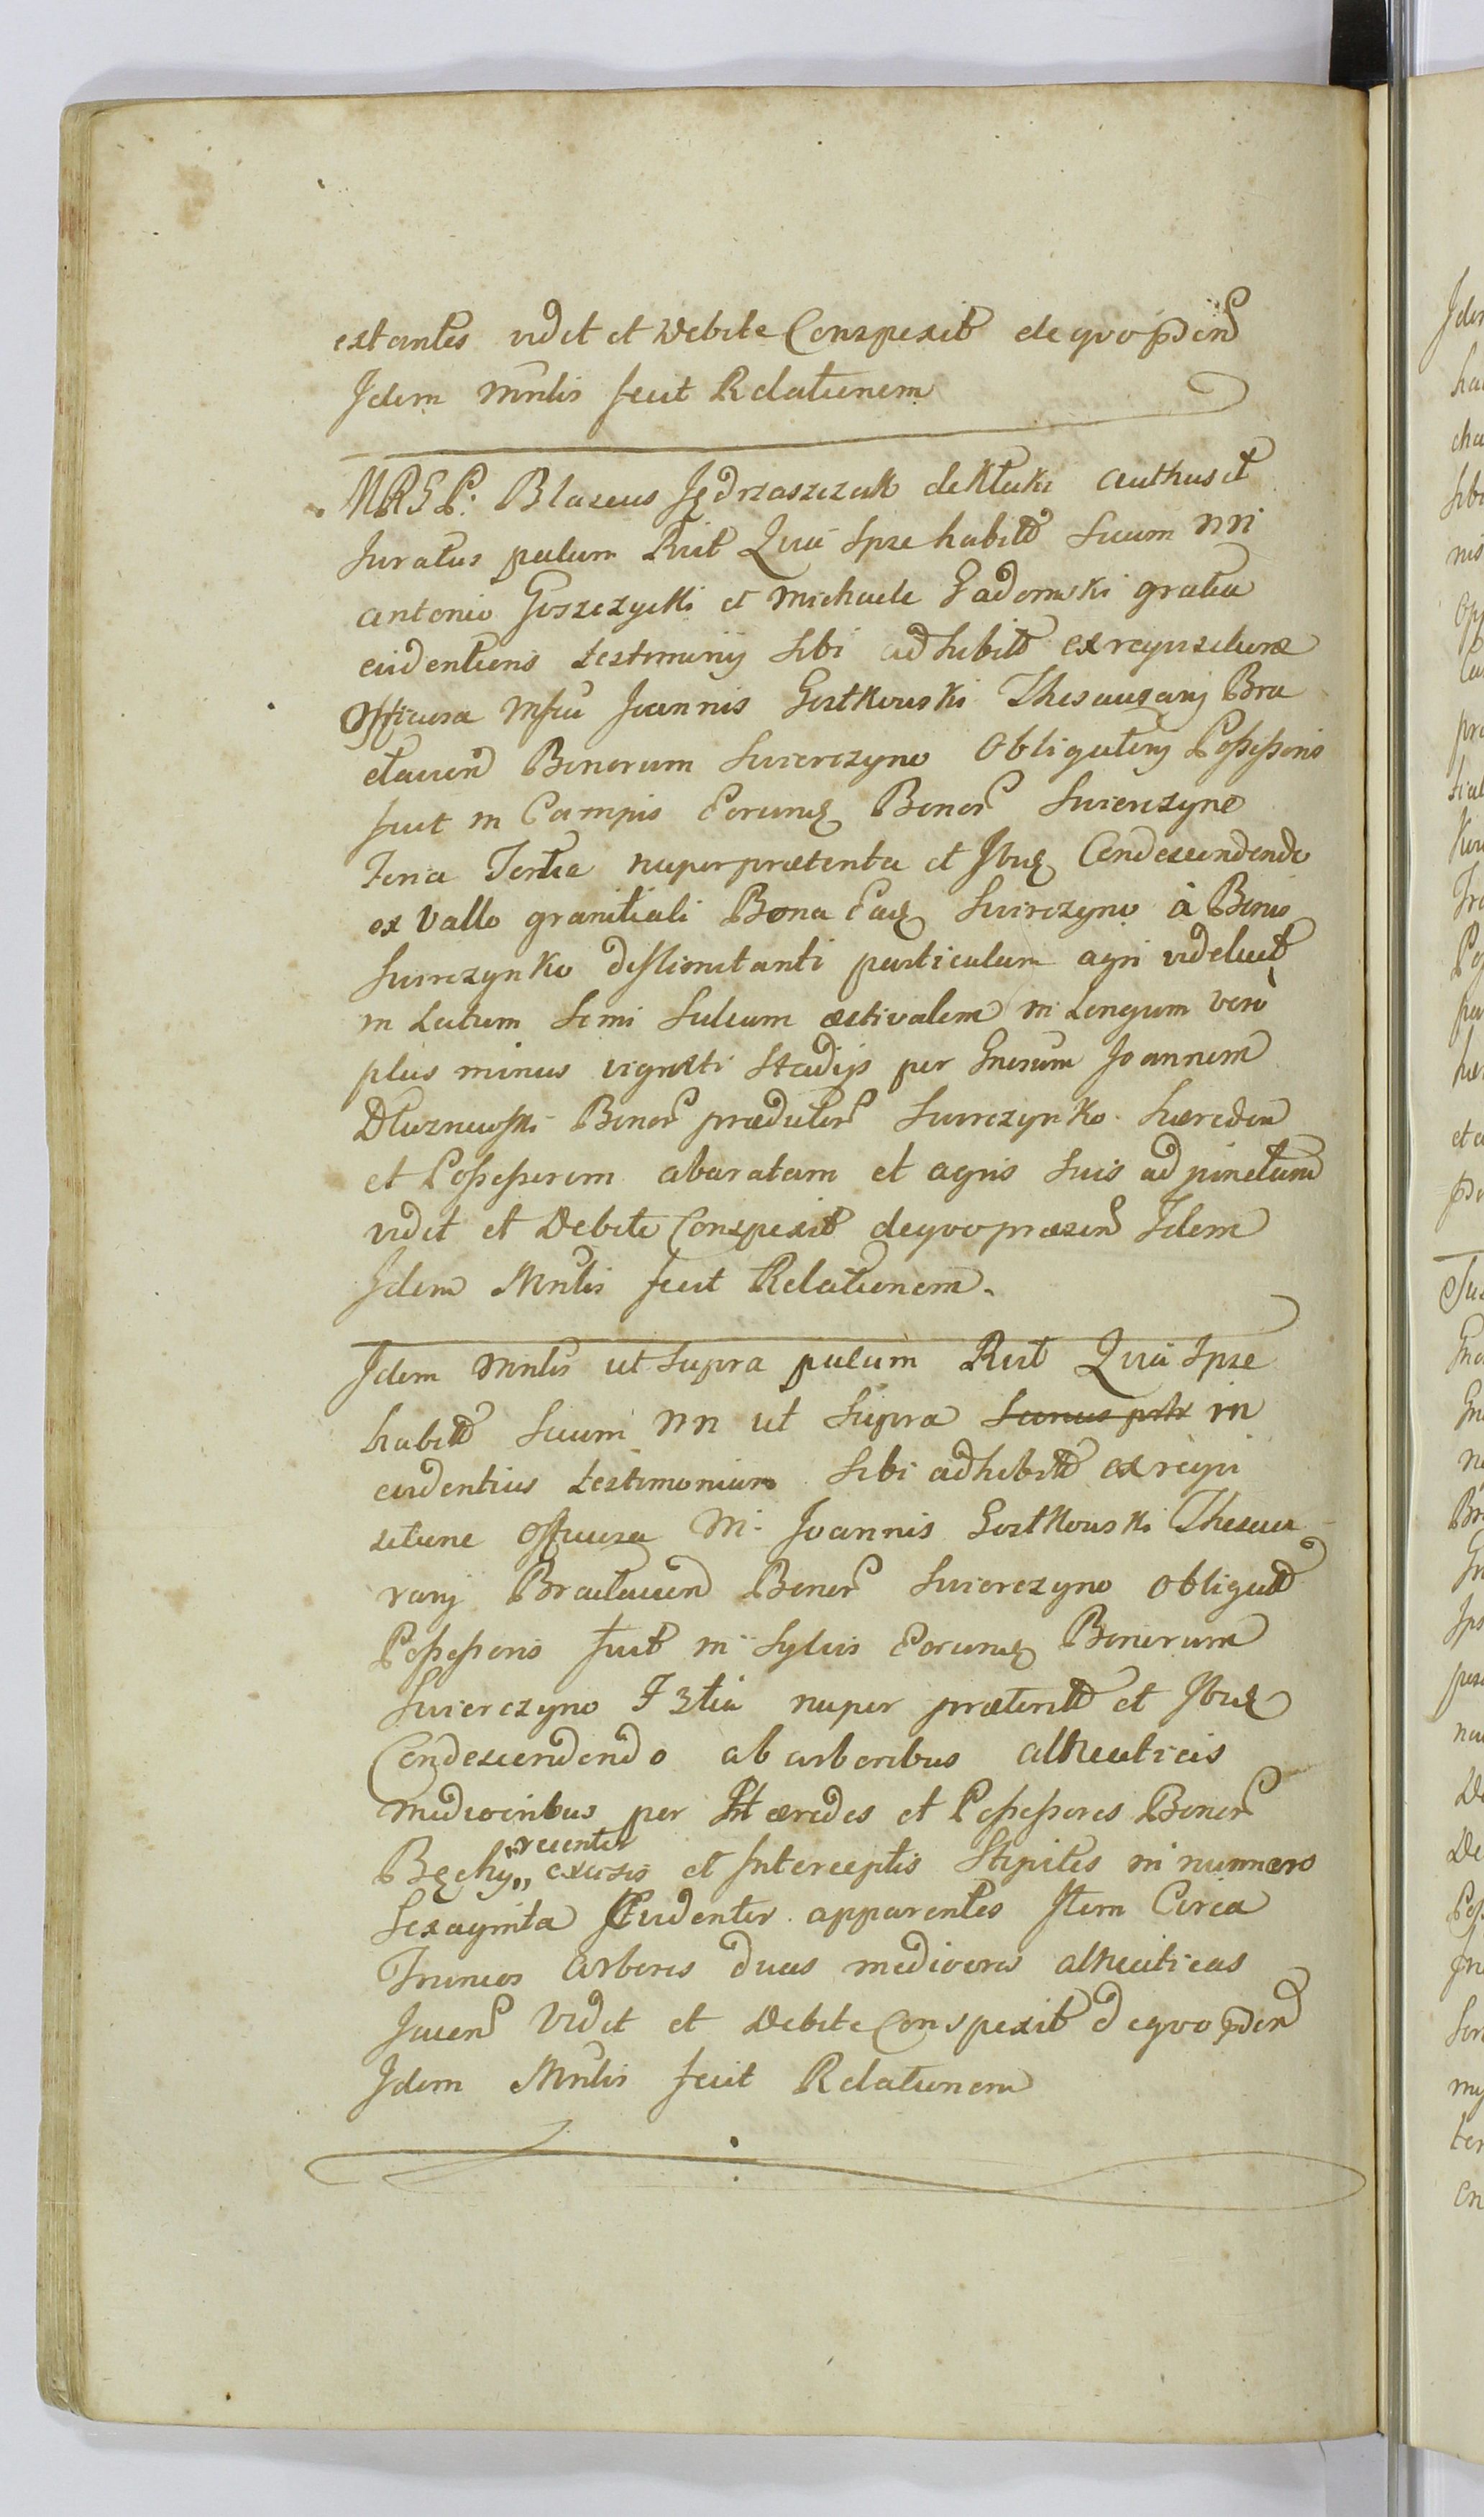 extantes vidit et debite Conspexit de quo pden
Idem Mnlis fecit Relationem
MRGP: Blasius Jędrzaszczak de Kłaki authus et
Juratus palam Rcit Quia Ipse habitd secum NN
antonio Goszczycki et Michaele Gadomski gratia
evidentiens testimonij sibi adhibitd ex requisitione
Officiosa Mfci Joannis Gostkowski Thesaurarij Bra
clavien Bonorum Swierczyno Obligatorij Possessoris
fuit in Campis Eorundq Bonor Swierczyno
Feria Tertia nuper praeterita et Ibidq Condescendendo
ex Vallo granitiali Bona Eadq Swirczyno à Bonis
Swirczynko distlimitanti particulam agri videlicet
in Latum semi sulcum aestivalem in Longum vero
plus minus viginti stadijs per Gnosum Joannem
Dłuzniewski Bonor praedictor Swirczynko haeredem
et Possessorem aboratam et agris suis ad pinctam
vidit et Debite Conspexit de quo praesen Idem
Idem Mnlis fecit Relationem.
Idem Mnlis ut supra palam Rcit Quia Ipse
habitd secum NN ut supra in
evidentius testimonium sibi adhibitd ex requi
sitione Officiosa M. Joannis Gostkowski Thesau
rarij Braclavien Bonor Swierczyno obligatd
Possessoris fuit in Sylvis Eorundq Bonorum
Swierczyno F 3tia nuper praeteritd et Ibidq
Condescendendo ab arboribus alneiticis
mediocribus per Haeredes et Possessores Bonor
Bęchy recenter excisis et Interceptis Stipites in numero
sexaginta Evidenter apparentes Item Circa
Truncos arbores duas mediocres alneiticas
Jacen Vidit et Debite Conspexit de quo pden
Idem Mnlis fecit Relationem